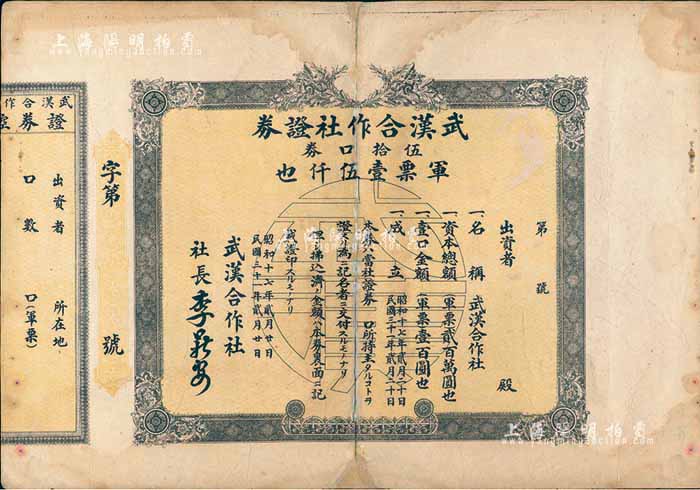 上海陽明拍賣
www.yangmingauction.com
武漢合作社證券
伍拾口券
軍票壹伍仟也
第 號
出資者 殿
一、名稱 武漢合作社
一、資本總額 軍票貳百萬圓也
一、壹口金額 軍票壹百圓也
一、成立 昭和十七年貳月二十日
民國三十一年貳月二十日
本券ハ當社證券 口所持主タルコトヲ
證 為ニ記名者ニ交付スルモノナリ
拂込濟ノ金額ハ本券裏面ニ記
證印スルモノナリ
昭和十七年貳月廿日
民國三十一年貳月廿日
武漢合作社
社長
字第 號
武漢合作
證券
出資者 所在地
口數 口(軍票)
上海陽明拍賣
www.yangmingauction.com